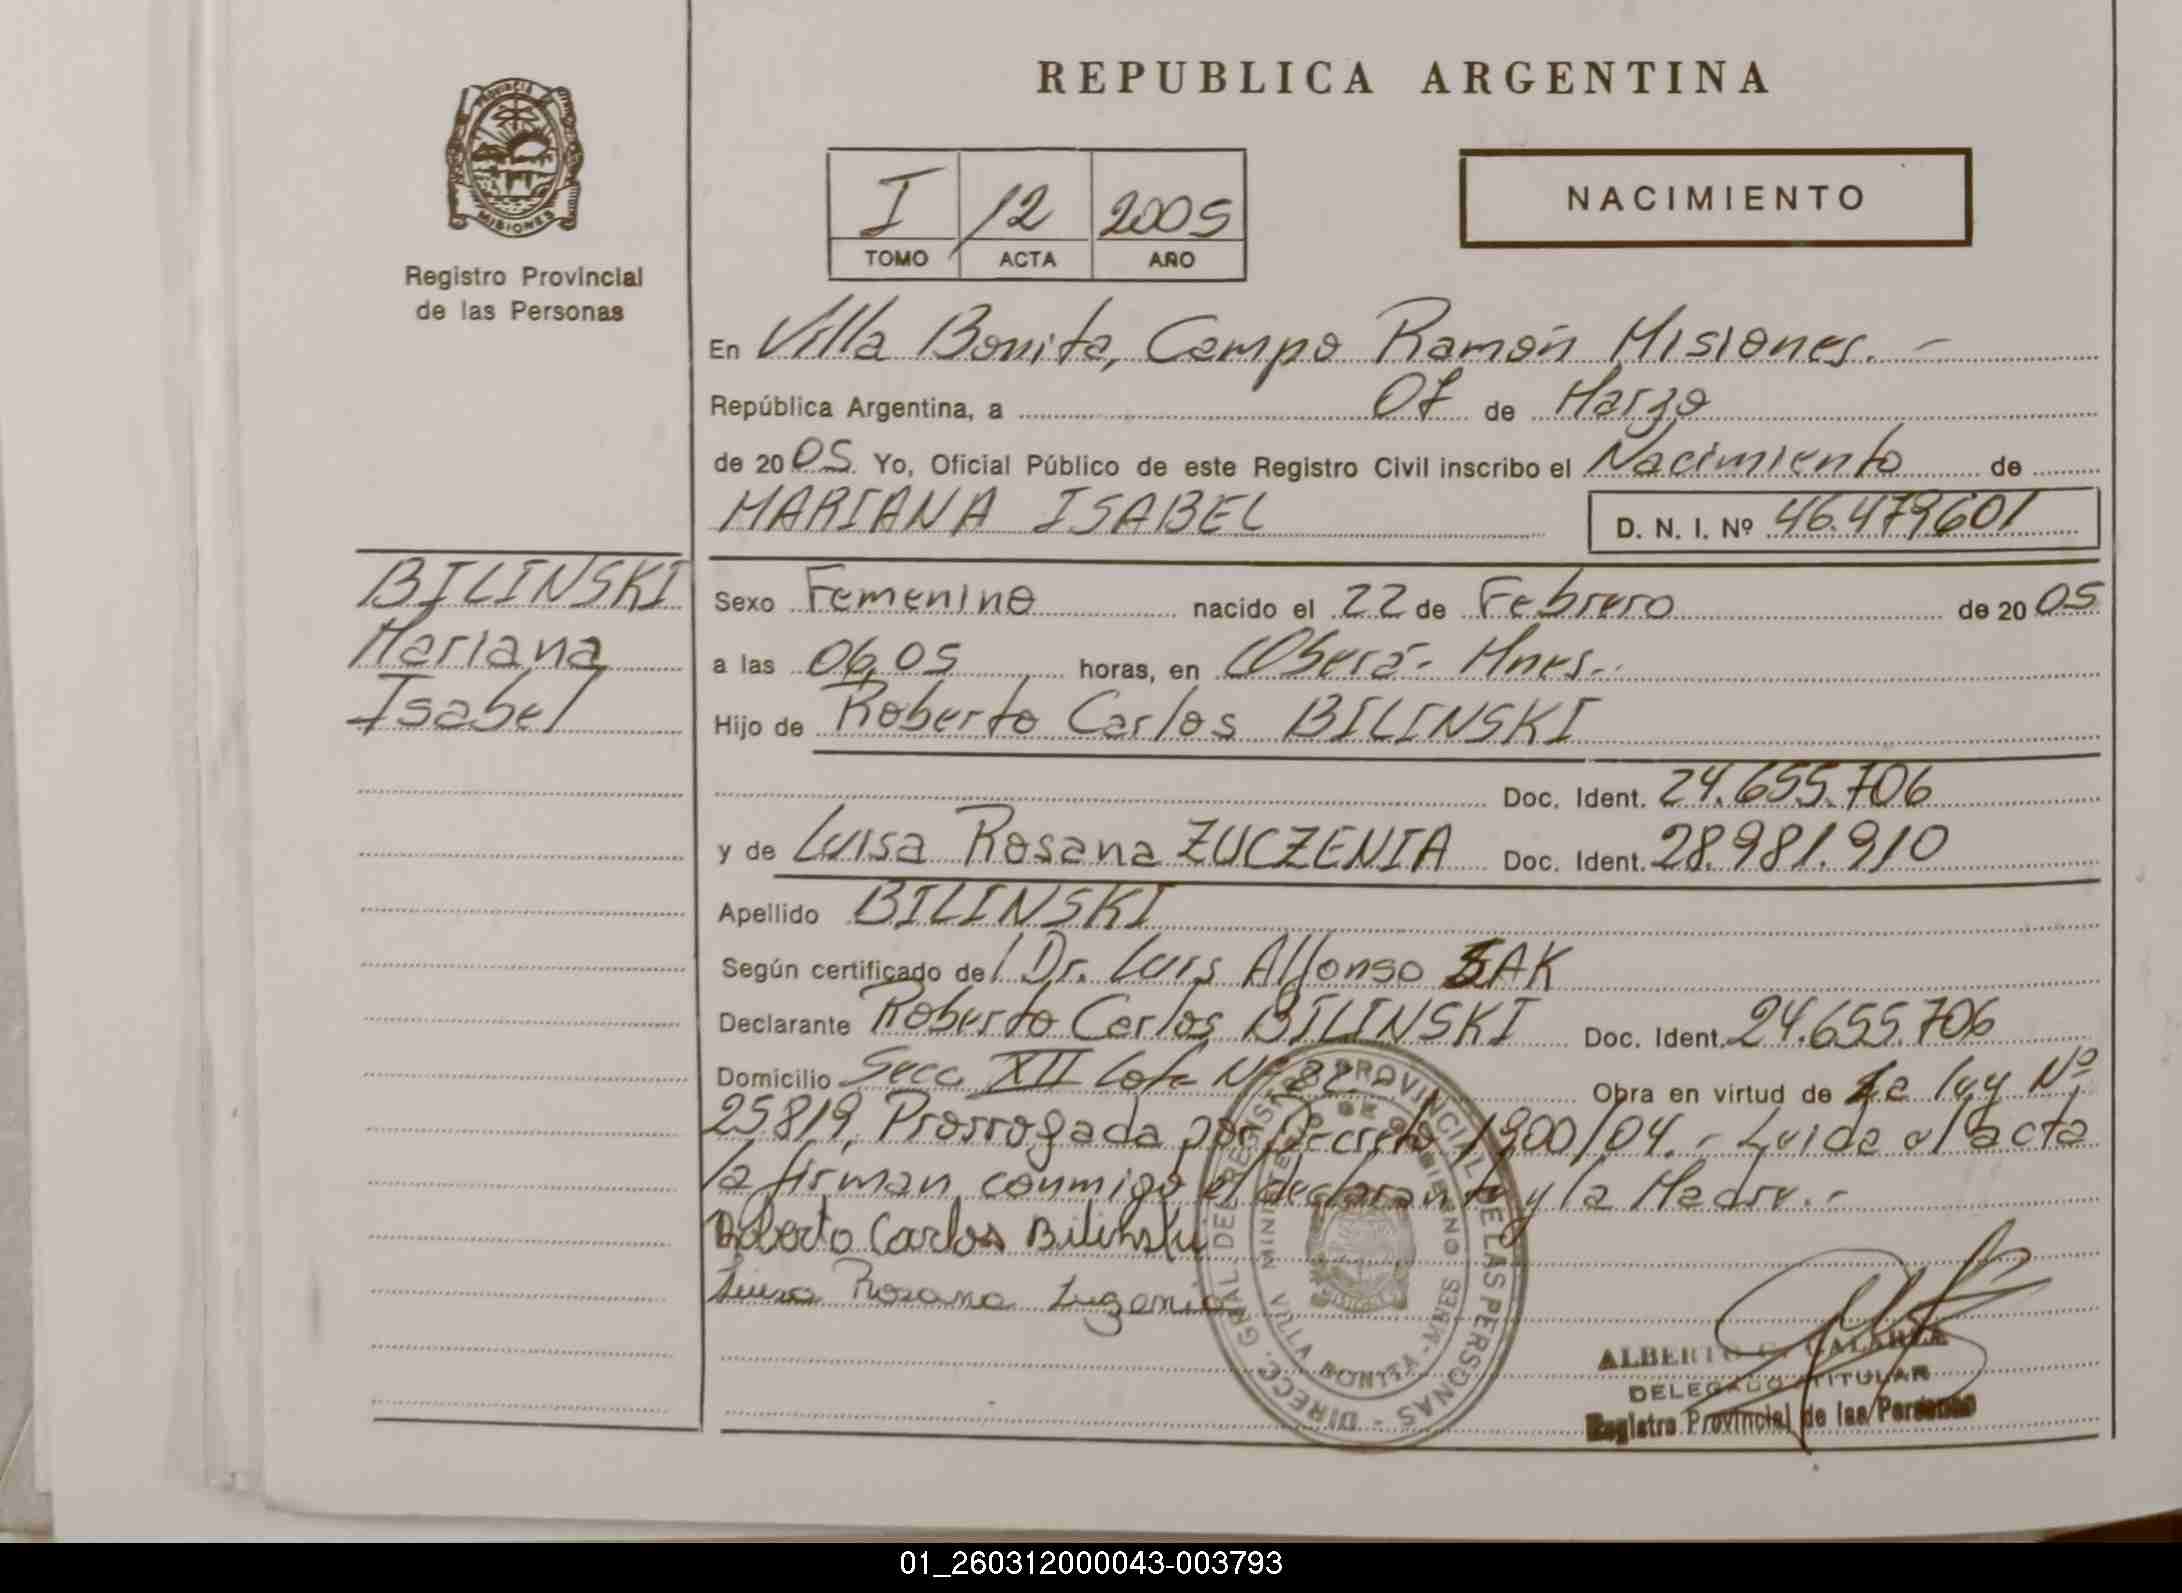 REPUBLICA ARGENTINA
PROVINCIA
MISIONES
Registro Provincial
de las Personas
I 12 2005
TOMO ACTA AÑO
NACIMIENTO
En Villa Bonita, Campo Ramón Misiones. -
República Argentina, a 07 de Marzo
de 2005. Yo, Oficial Público de este Registro Civil inscribo el Nacimiento de
MARIANA ISABEL
D. N. I. Nº 46.479601
BILINSKI
Mariana
Isabel
Sexo Femenino nacido el 22 de Febrero de 2005
a las 06,05 horas, en Oberá - Mnes.
Hijo de Roberto Carlos BILINSKI
Doc. Ident. 24.655.706
y de Luisa Rosana ZUCZENIA Doc. Ident. 28.981.910
Apellido BILINSKI
Según certificado del Dr. Luis Alfonso SAK
Declarante Roberto Carlos BILINSKI Doc. Ident. 24.655.706
Domicilio Secc. XII Lote Nº 82.- Obra en virtud de La ley Nº
25819, Prorrogada por Decreto 1900/04. - Leida el acta
la firman conmigo el declarante y la Madre. -
Roberto Carlos Bilinski
Luisa Rosana
DIRECC. GRAL. DEL REGISTRO PROVINCIAL DE LAS PERSONAS -
MINISTERIO DE GOBIERNO
VILLA BONITA - MNES
ALBERTO
DELEGADO TITULAR
Registro Provincial de las Personas
01_260312000043-003793